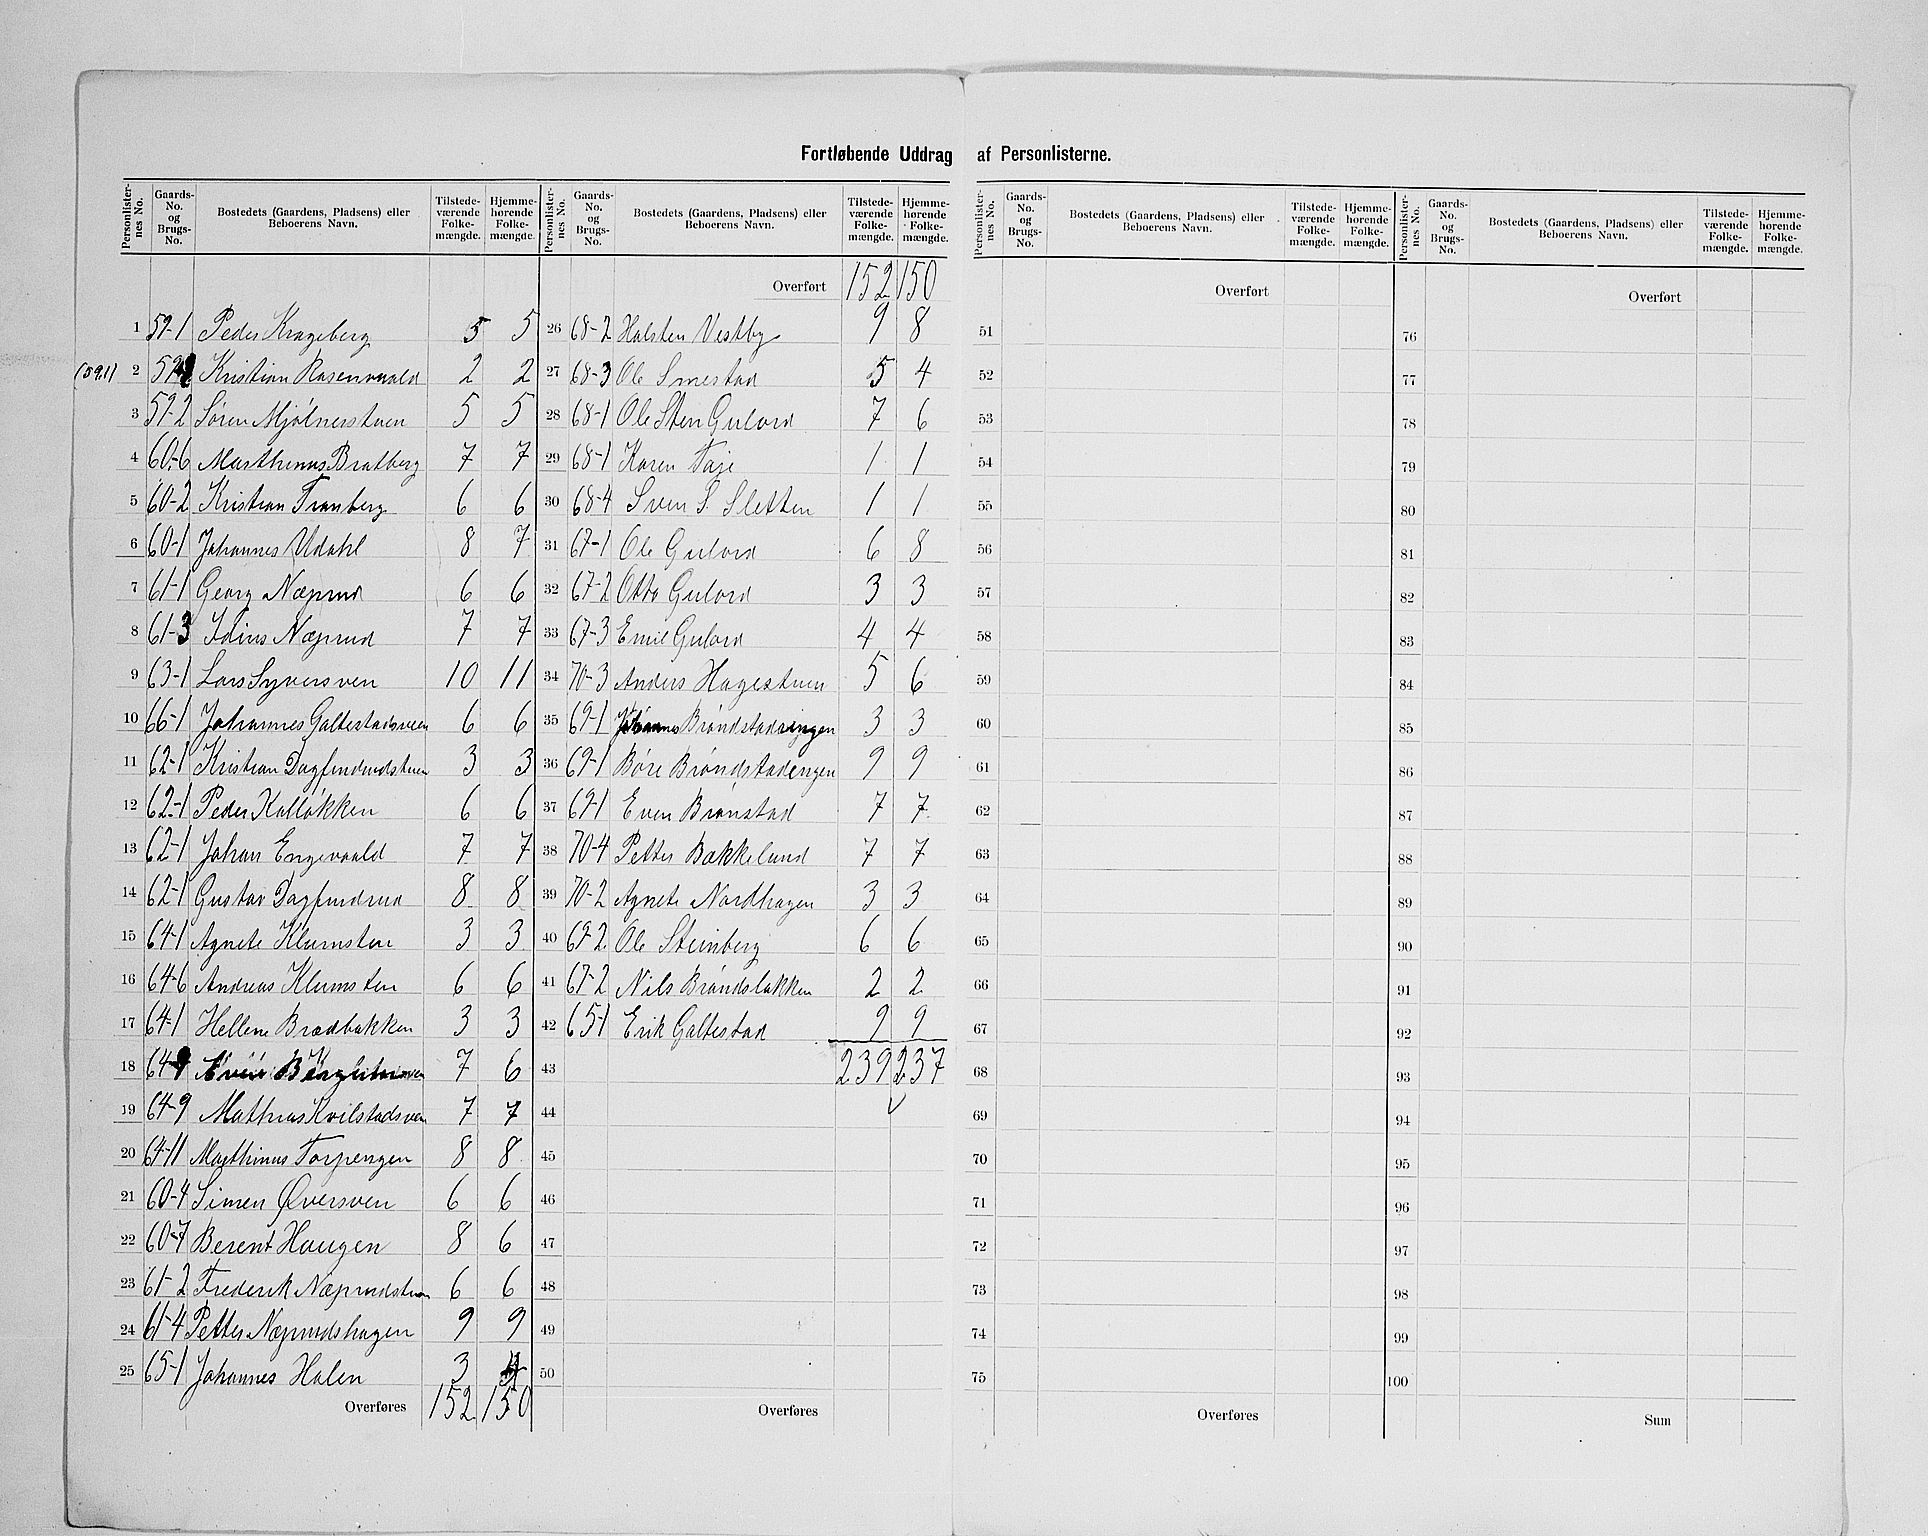 Fortløbende Uddrag af Personlisterne.
Personlister-nes No. Gaards-No. og Brugs-No. Bostedets (Gaardens, Pladsens) eller Beboerens Navn. Tilstede-værende Folke-mængde. Hjemme-hørende Folke-mængde. Personlister-nes No. Gaards-No. og Brugs-No. Bostedets (Gaardens, Pladsens) eller Beboerens Navn. Tilstede-værende Folke-mængde. Hjemme-hørende Folke-mængde. Personlister-nes No. Gaards-No. og Brugs-No. Bostedets (Gaardens, Pladsens) eller Beboerens Navn. Tilstede-værende Folke-mængde. Hjemme-hørende Folke-mængde. Personlister-nes No. Gaards-No. og Brugs-No. Bostedets (Gaardens, Pladsens) eller Beboerens Navn. Tilstede-værende Folke-mængde. Hjemme-hørende Folke-mængde.
1 59-1 Peder Krageberg 5 5
(59.1) 2 Kristian Rosenvaald 2 2
3 59-2 Søren Mjølnerstuen 5 5
4 60-6 Marthinus Bratberg 7 7
5 60-2 Kristian Tranberg 6 6
6 60-1 Johannes Udahl 8 7
7 61-1 Georg Næprud 6 6
8 61-3 Næprud 7 7
9 63-1 Lars Syversven 10 11
10 66-1 Johannes Galtestadsveen 6 6
11 62-1 Kristian Dagfinrudstuen 3 3
12 62-1 Peder Kalløkken 6 6
13 62-1 Johan Engevaald 7 7
14 62-1 Gustav Dagfinrud 8 8
15 64-1 Agnete Klumsten 3 3
16 64-6 Andreas Klumsten 6 6
17 64-1 Hellene Brædbakken 3 3
18 7 6
19 64-9 Mathias Kvilstadsven 7 7
20 64-11 Marthinus Torpengen 8 8
21 60-4 Simen Øversven 6 6
22 60-7 Berent Haugen 8 6
23 61-2 Frederik Næprudstuen 6 6
24 61-4 Petter Næprudshagen 9 9
25 65-1 Johannes Halen 3 4
Overføres 152 150
Overført 152 150
26 68-2 Halsten Vestby 9 8
27 68-3 Ole Smestad 5 4
28 68-1 Ole Sten Gulord 7 6
29 68-1 Karen Faje 1 1
30 68-4 Sven S. Sletten 1 1
31 67-1 Ole Gulord 6 8
32 67-2 Otto Gulord 3 3
33 67-3 Emil Gulord 4 4
34 70-3 Anders Hagestuen 5 6
35 69-1 Johannes Brøndstadengen 3 3
36 69-1 Børe Brøndstadengen 9 9
37 69-1 Even Brønstad 7 7
38 70-4 Petter Bækkelund 7 7
39 70-2 Agnete Nordhagen 3 3
40 69-2 Ole Steinberg 6 6
41 67-2 Nils Brøndsløkken 2 2
42 65-1 Erik Galtestad 9 9
43 239 237
44
45
46
47
48
49
50
Overføres
Overført
51
52
53
54
55
56
57
58
59
60
61
62
63
64
65
66
67
68
69
70
71
72
73
74
75
Overføres
Overført
76
77
78
79
80
81
82
83
84
85
86
87
88
89
90
91
92
93
94
95
96
97
98
99
100
Sum